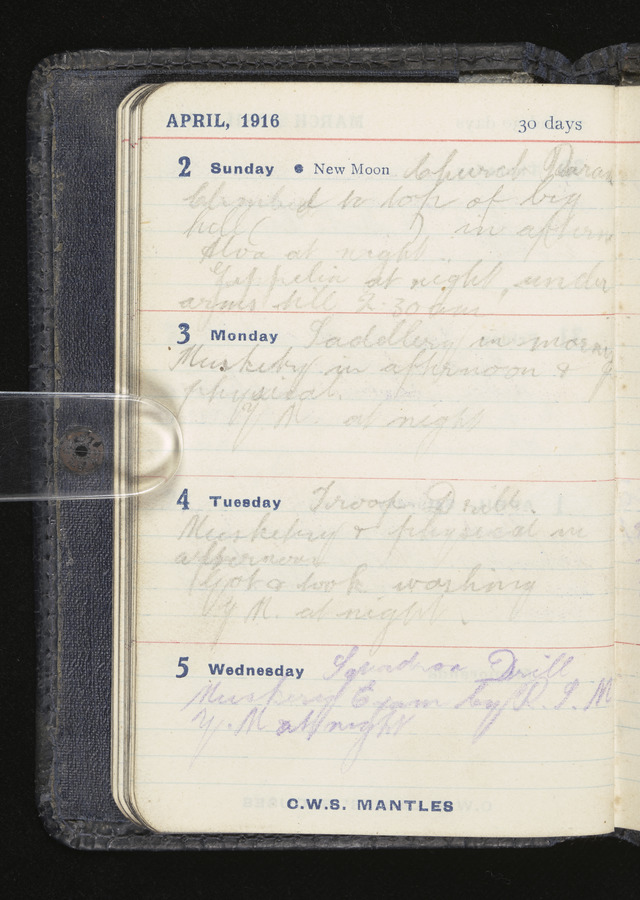 APRIL, 1916 30 days
2 Sunday New Moon Church Parade
Climbed to top of big
hill ( ) in aftern
Alva at night
Zeppelin at night, under
arms till 2.30 am
3 Monday Saddlery in morning
Musketry in afternoon &
physical.
Y M. at night
4 Tuesday Troop Drill.
Musketry & physical in
afternoon
Got & took washing
Y M. at night.
5 Wednesday Squadron Drill
Musketry Exam by R. S. M
Y. M at night
C.W.S. MANTLES